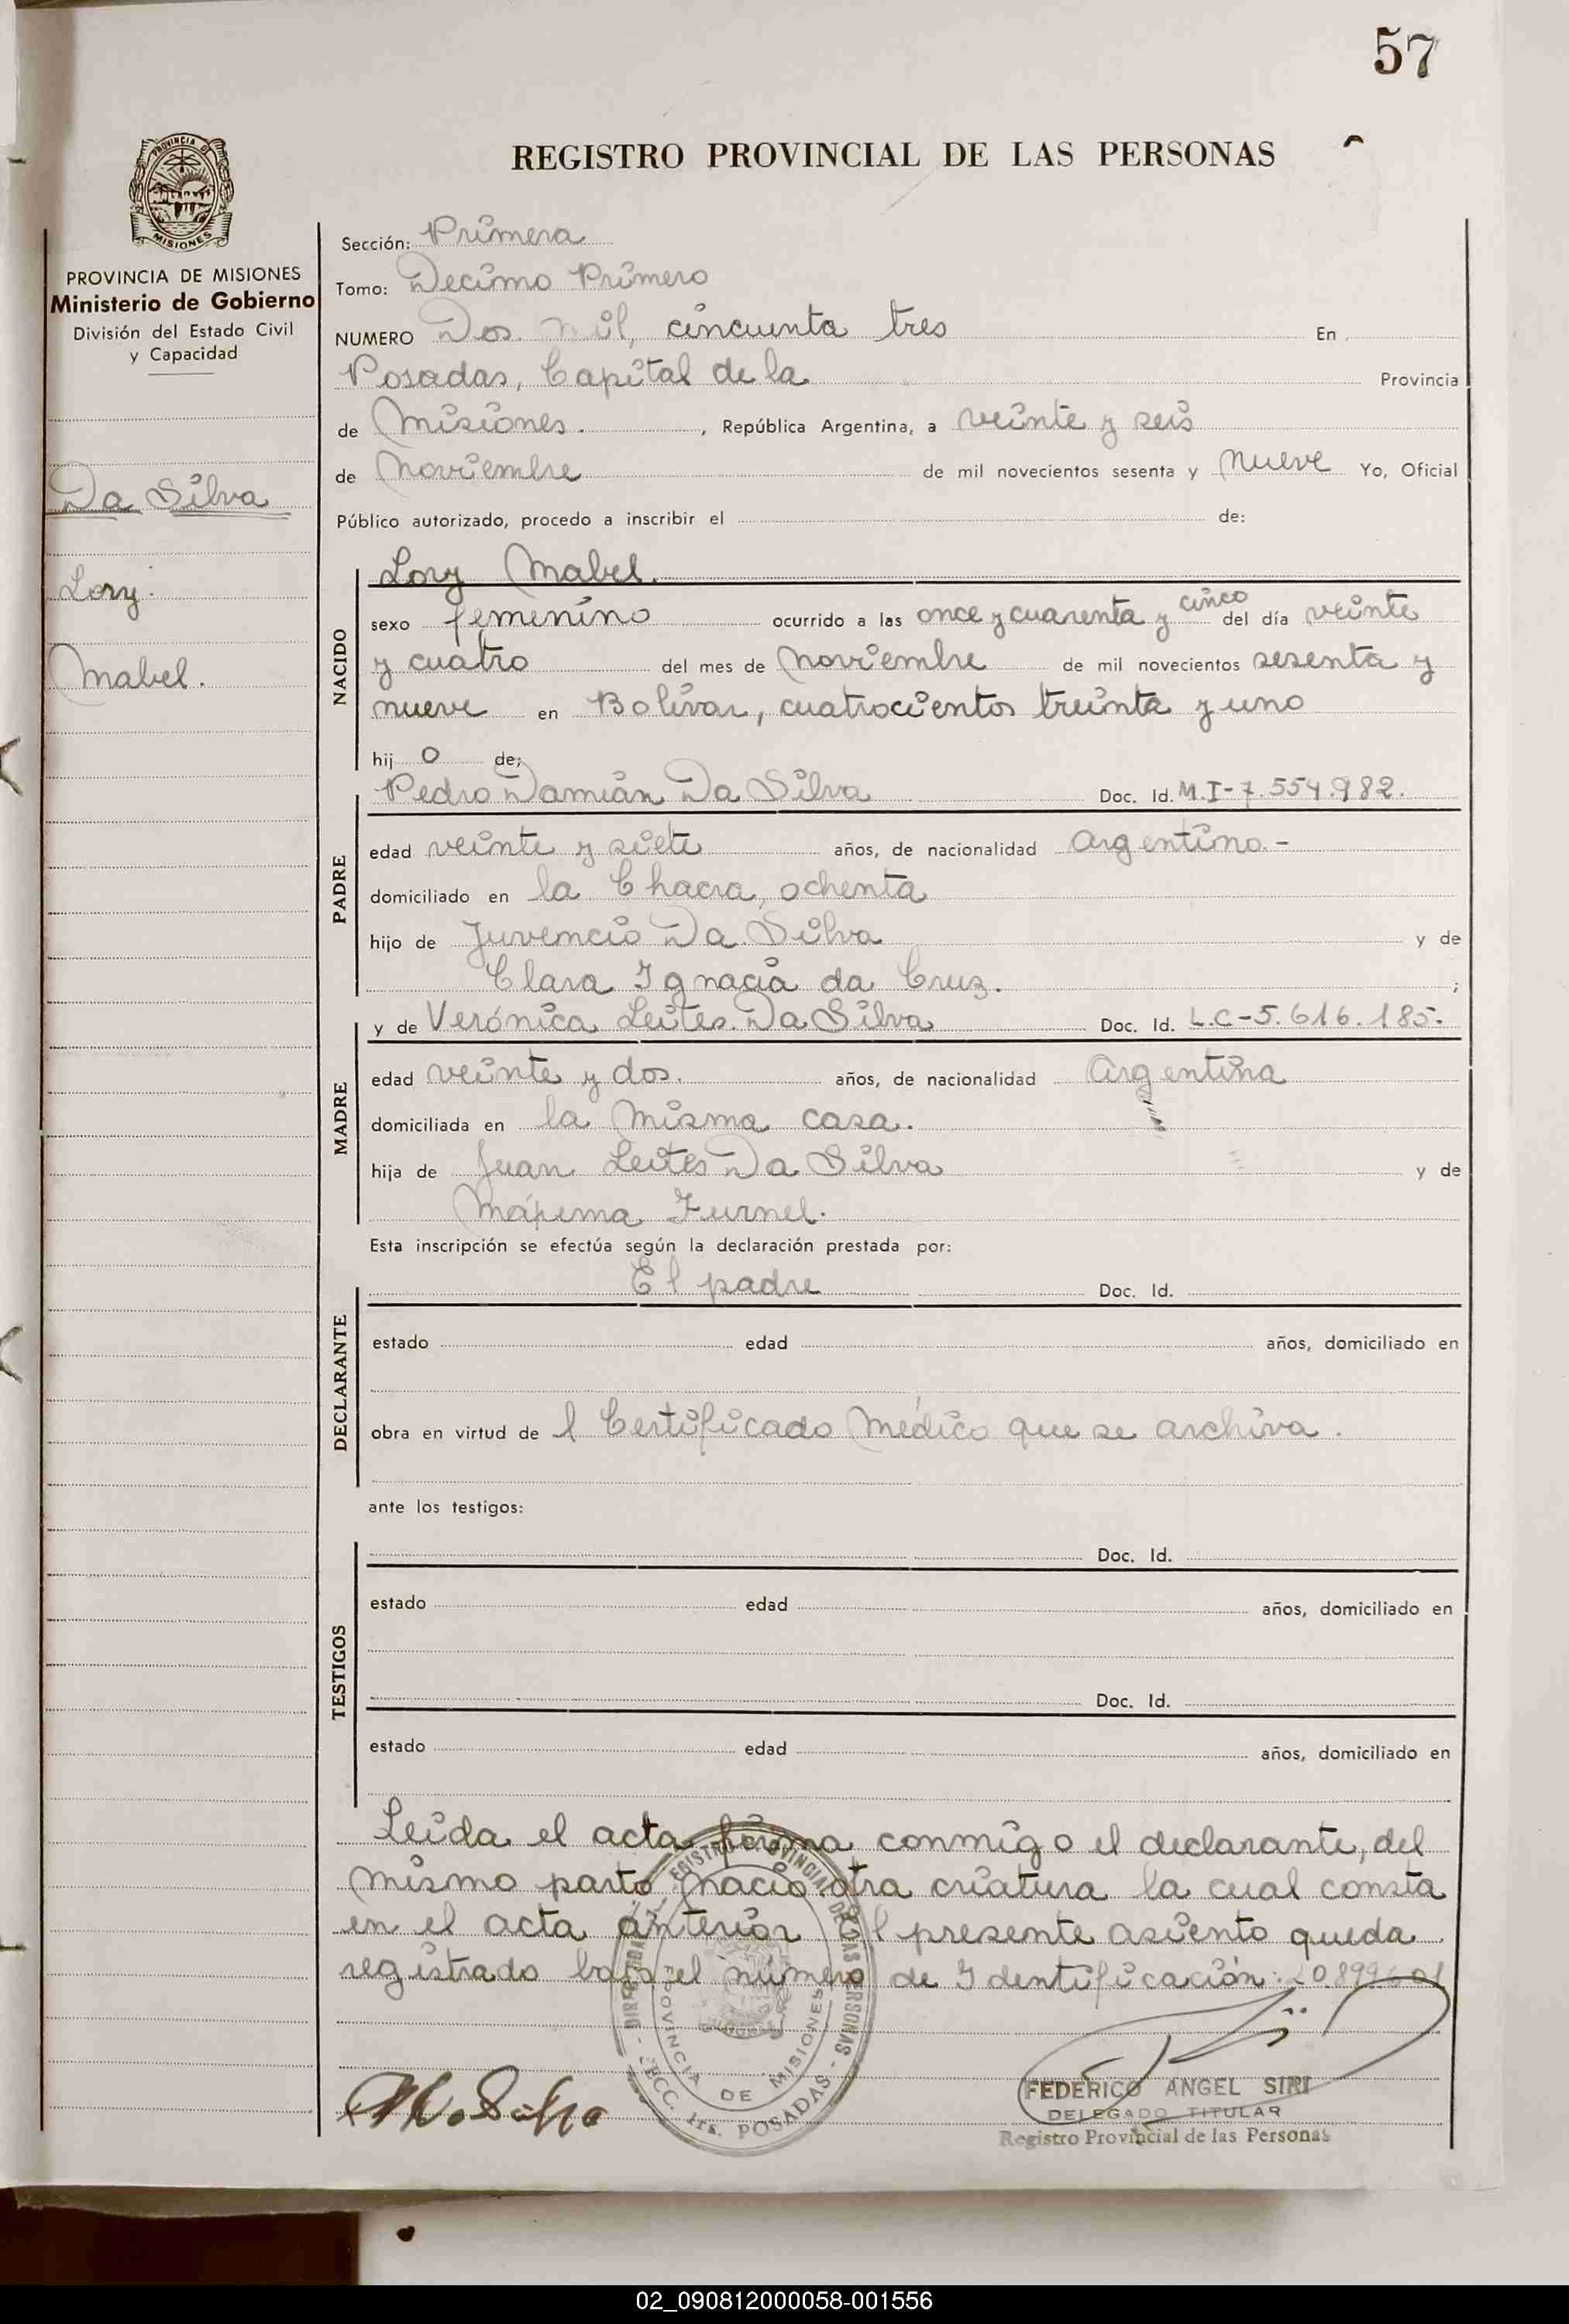 57
REGISTRO PROVINCIAL DE LAS PERSONAS
PROVINCIA DE MISIONES
Ministerio de Gobierno
División del Estado Civil
y Capacidad
Da Silva
Lory
Mabel.
Sección: Primera
Tomo: Decimo Primero
NUMERO Dos mil, cincuenta tres En
Posadas, Capital de la Provincia
de Misiones. , República Argentina, a veinte y seis
de Noviembre de mil novecientos sesenta y Nueve Yo, Oficial
Público autorizado, procedo a inscribir el de:
Lory Mabel.
NACIDO
sexo femenino ocurrido a las once y cuarenta y cinco del día veinte
y cuatro del mes de Noviembre de mil novecientos sesenta y
nueve en Bolívar, cuatrocientos treinta y uno
hij o de;
Pedro Damián Da Silva Doc. Id. M.I-7.554.982.
PADRE
edad veinte y siete años, de nacionalidad Argentino.-
domiciliado en la Chacra, ochenta
hijo de Juvencio Da Silva y de
Clara Ignacia da Cruz. ;
y de Verónica Leites Da Silva Doc. Id. L.C-5.616.185.
MADRE
edad veinte y dos. años, de nacionalidad Argentina
domiciliada en la misma casa.
hija de Juan Leites Da Silva y de
Máxima Furnel.
Esta inscripción se efectúa según la declaración prestada por:
El padre Doc. Id.
DECLARANTE
estado edad años, domiciliado en
obra en virtud de l Certificado Médico que se archiva.
ante los testigos:
Doc. Id.
TESTIGOS
estado edad años, domiciliado en
Doc. Id.
estado edad años, domiciliado en
Leida el acta firma conmigo el declarante, del
mismo parto nacio otra criatura la cual consta
en el acta anterior El presente asiento queda
registrado bajo el número de Identificación:
PROVINCIA DE MISIONES
POSADAS
FEDERICO ANGEL SIRI
DELEGADO TITULAR
Registro Provincial de las Personas
02_090812000058-001556